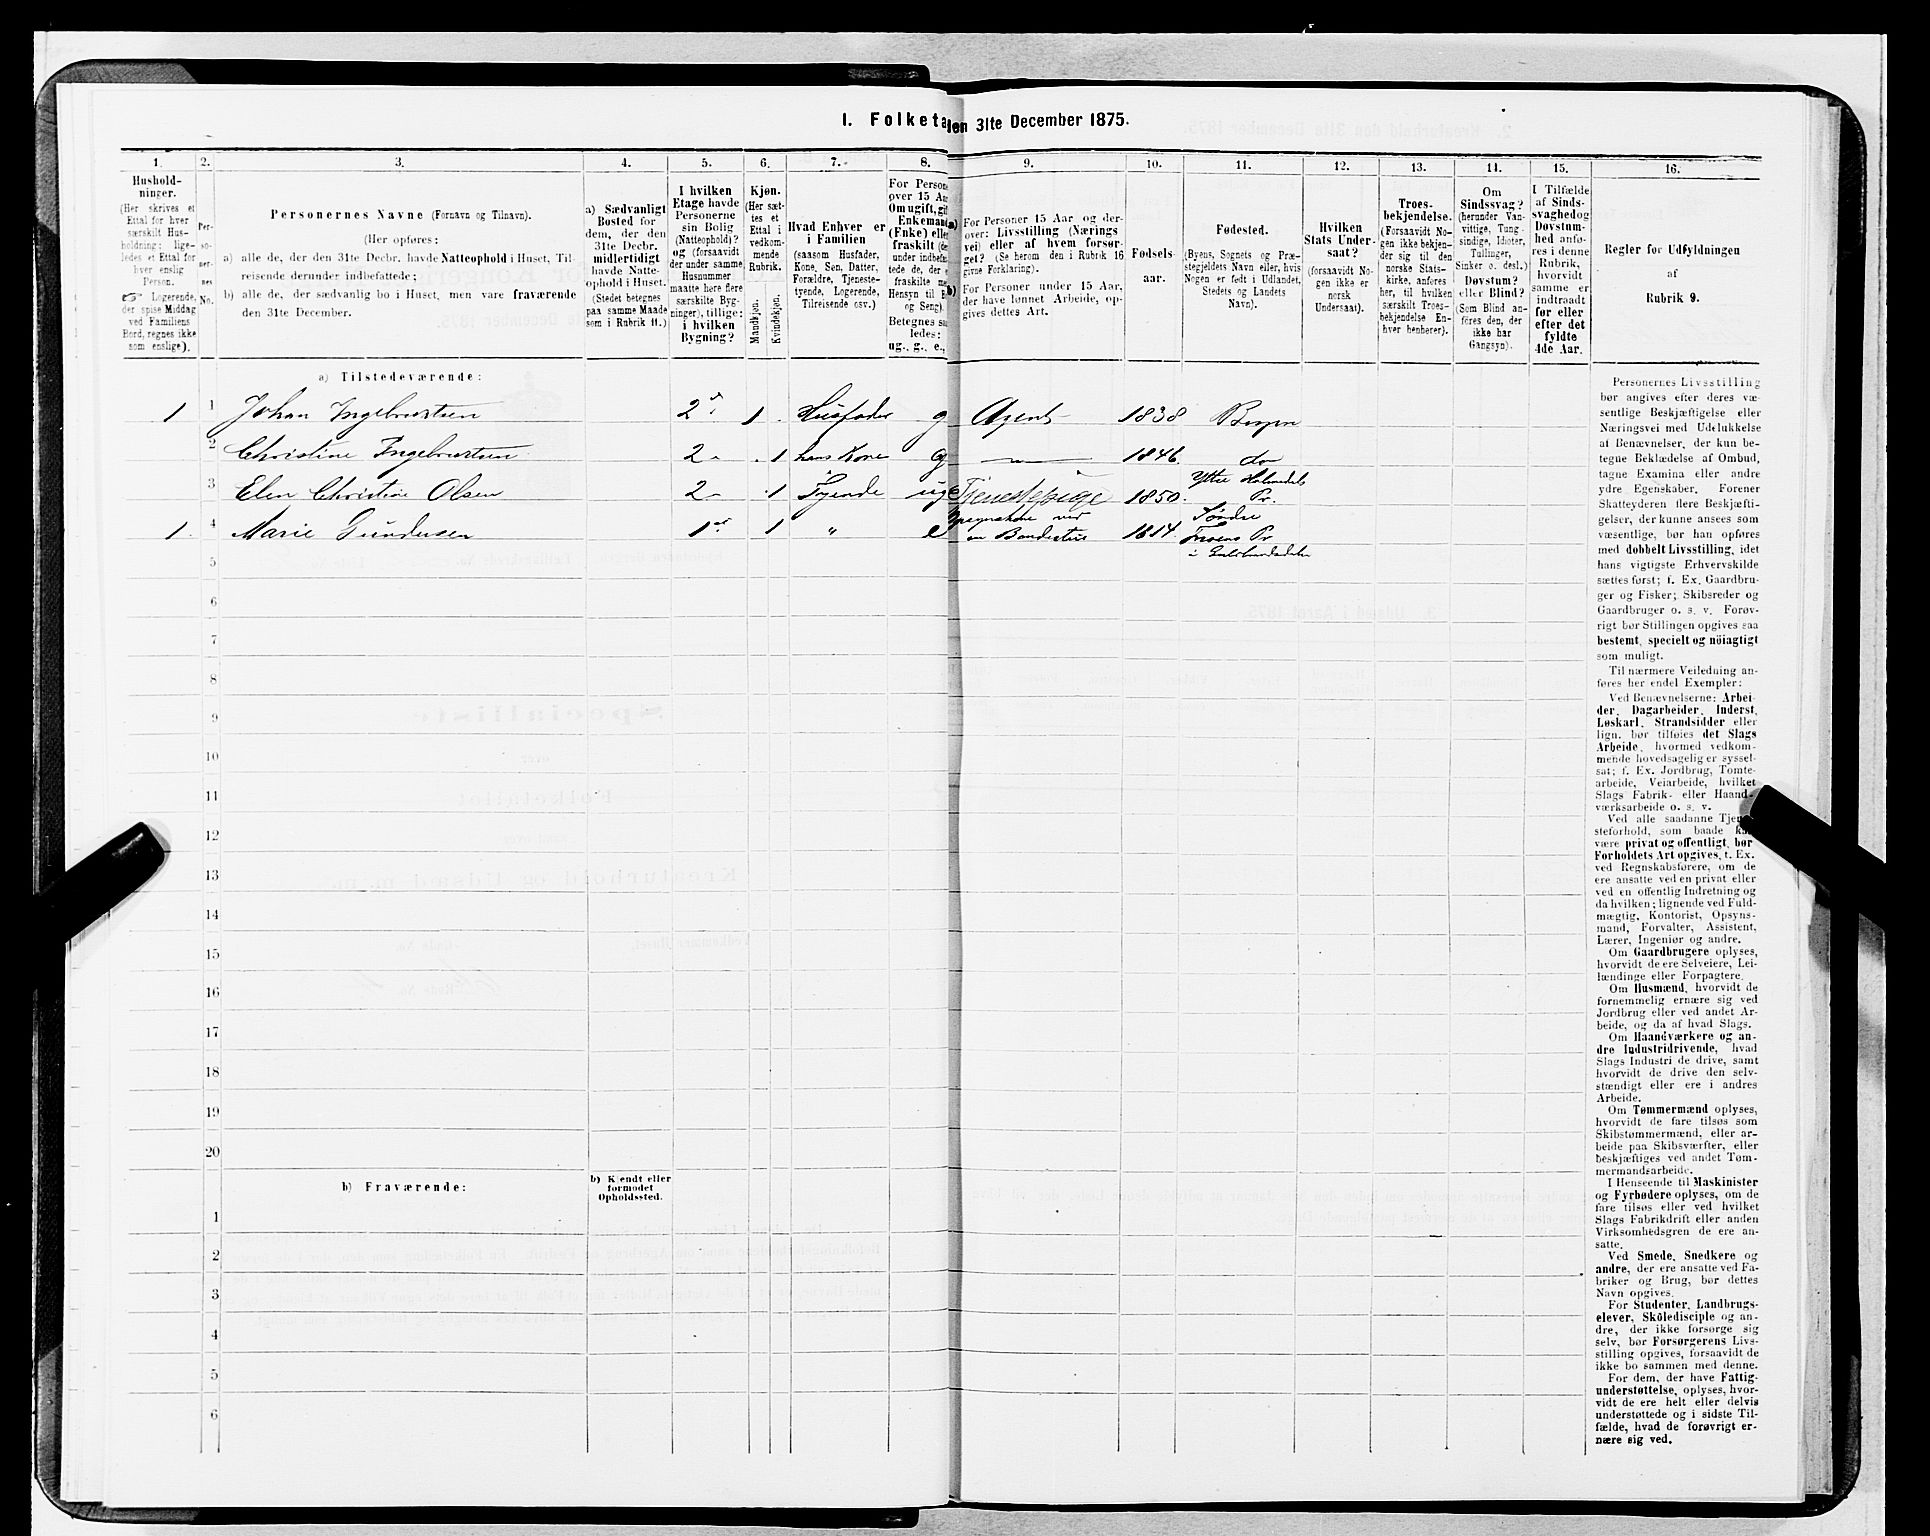 I. Folketal den 31te December 1875.
1. 2. 3. 4. 5. 6. 7. 8. 9. 10. 11. 12. 13. 14. 15. 16.
Hushold-
ninger.
(Her skrives et
Ettal for hver
særskilt Hus-
holdning; lige-
ledes et Ettal for
hver enslig
Person.
☞ Logerende,
der spise Middag
ved Familiens
Bord, regnes ikke
som enslige).
Per-
so-
ner-
nes
No.
Personernes Navne (Fornavn og Tilnavn).
(Her opføres:
a) alle de, der den 31te Decbr. havde Natteophold i Huset, Til-
reisende derunder indbefattede;
b) alle de, der sædvanlig bo i Huset, men vare fraværende
den 31te December.
a) Sædvanligt
Bosted for
dem, der den
31te Decbr.
midlertidigt
havde Natte-
ophold i Huset.
(Stedet betegnes
paa samme Maade
som i Rubrik 11.)
I hvilken
Etage havde
Personerne
sin Bolig
(Natteophold)?
og (forsaavidt
der under samme
Husnummer
maatte høre flere
særskilte Byg-
ninger), tillige:
i hvilken
Bygning?
Kjøn.
(Her sæt-
tes et
Ettal i
vedkom-
mende
Rubrik.
Mandkjøn.
Kvindekjøn.
Hvad Enhver er
i Familien
(saasom Husfader,
Kone, Søn, Datter,
Forældre, Tjeneste-
tyende, Logerende,
Tilreisende osv.)
For Persone
over 15 Aa
Om ugift, gif
Enkemand
(Enke) elle
fraskilt (de
under indbefa
tede de, der e
fraskilte m
Hensyn til B
og Seng).
Betegnes saa
ledes:
ug., g., e.,
a)
For Personer 15 Aar og der-
over: Livsstilling (Nærings
vei) eller af hvem forsør-
get? (Se herom den i Rubrik 16
givne Forklaring).
b)
For Personer under 15 Aar,
der have lønnet Arbeide, op-
gives dettes Art.
Fødsels-
aar.
Fødested.
(Byens, Sognets og Præ-
stegjeldets Navn eller, hvis
Nogen er født i Udlandet,
Stedets og Landets
Navn).
Hvilken
Stats Under-
saat?
(forsaavidt No-
gen ikke er
norsk
Undersaat).
Troes-
bekjendelse.
(Forsaavidt No-
gen ikke bekjen-
der sig til den
norske Stats-
kirke, anføres
her, til hvilken
særskilt Troes-
bekjendelse En-
hver henhører).
Om
Sindssvag?
(herunder Van-
vittige, Tung-
sindige, Idioter,
Tullinger,
Sinker o. desl.)
Døvstum?
eller Blind?
(Som Blind an-
føres den, der
ikke har
Gangsyn).
I Tilfælde
af Sinds-
svaghed og
Døvstum-
hed anfø-
res i denne
Rubrik,
hvorvidt
samme er
indtraadt
før eller
efter det
fyldte
4de Aar.
Regler for Udfyldningen
af
Rubrik 9.
a) Tilstedeværende:
1 1 Johan Ingebrertsen 2 1 Husfader g Agent 1838 Bergen
2 Christine Ingebrertsen 2 1 hans Kone g 1846 do
3 Elen Christine Olsen 2 1 Tyende ug Tjenestepige 1850 Yttre Holmedals Pr.
1 4 Marie Gundersen 1 1 " e 1814 Søndre
5
6
7
8
9
10
11
12
13
14
15
16
17
18
19
20
b) Fraværende:
b) Kjendt eller
formodet
Opholdssted.
1
2
3
4
5
6
Personernes Livsstilling
bør angives efter deres væ-
sentlige Beskjæftigelse eller
Næringsvei med Udelukkelse
af Benævnelser, der kun be-
tegne Beklædelse af Ombud,
tagne Examina eller andre
ydre Egenskaber. Forener
Skatteyderen flere Beskjæfti-
gelser, der kunne ansees som
væsentlige, bør han opføres
med dobbelt Livsstilling, idet
hans vigtigste Erhvervskilde
sættes først; f. Ex. Gaardbru-
ger og Fisker; Skibsreder og
Gaardbruger o. s. v. Forøv-
rigt bør Stillingen opgives saa
bestemt, specielt og nöiagtigt
som muligt.
Til nærmere Veiledning an-
føres her endel Exempler:
Ved Benævnelserne: Arbei-
der, Dagarbeider, Inderst,
Løskarl, Strandsidder eller
lign. bør tilføies det Slags
Arbeide, hvormed vedkom-
mende hovedsagelig er syssel-
sat; f. Ex. Jordbrug, Tomte-
arbeide, Veiarbeide, hvilket
Slags Fabrik- eller Haand-
værksarbeide o. s. v.
Ved alle saadanne Tjene-
steforhold, som baade kan
være privat og offentligt, bør
Forholdets Art opgives, t. Ex.
ved Regnskabsførere, om de
ere ansatte ved en privat eller
ved en offentlig Indretning og
da hvilken; lignende ved Fuld-
mægtig, Kontorist, Opsyns-
mand, Forvalter, Assistent,
Lærer, Ingeniør og andre.
Om Gaardbrugere oplyses,
hvorvidt de ere Selveiere, Lei-
lændinge eller Forpagtere.
Om Husmænd, hvorvidt de
fornemmelig ernære sig ved
Jordbrug eller ved andet Ar-
beide, og da af hvad Slags.
Om Haandværkere og an-
dre Industridrivende, hvad
Slags Industri de drive, samt
hvorvidt de drive den selv-
stændigt eller ere i andres
Arbeide.
Om Tømmermænd oplyses,
hvorvidt de fare tilsøs som
Skibstømmermænd, eller ar-
beide paa Skibsværfter, eller
beskjæftiges ved andet Tøm-
mermandsarbeide.
I Henseende til Maskinister
og Fyrbødere oplyses, om de
fare tilsøs eller ved hvilket
Slags Fabrikdrift eller anden
Virksomhedsgren de ere an-
satte.
Ved Smede, Snedkere og
andre, der ere ansatte ved Fa-
briker og Brug, bør dettes
Navn opgives.
For Studenter, Landbrugs-
elever, Skoledisciple og an-
dre, der ikke forsørge sig
selv, bør Forsørgerens Livs-
stilling opgives, forsaavidt de
ikke bo sammen med denne.
For dem, der have Fattig-
understøttelse, oplyses, hvor-
vidt de ere helt eller delvis
understøttede og i sidste Til-
fælde, hvad de forøvrigt er-
nære sig ved.